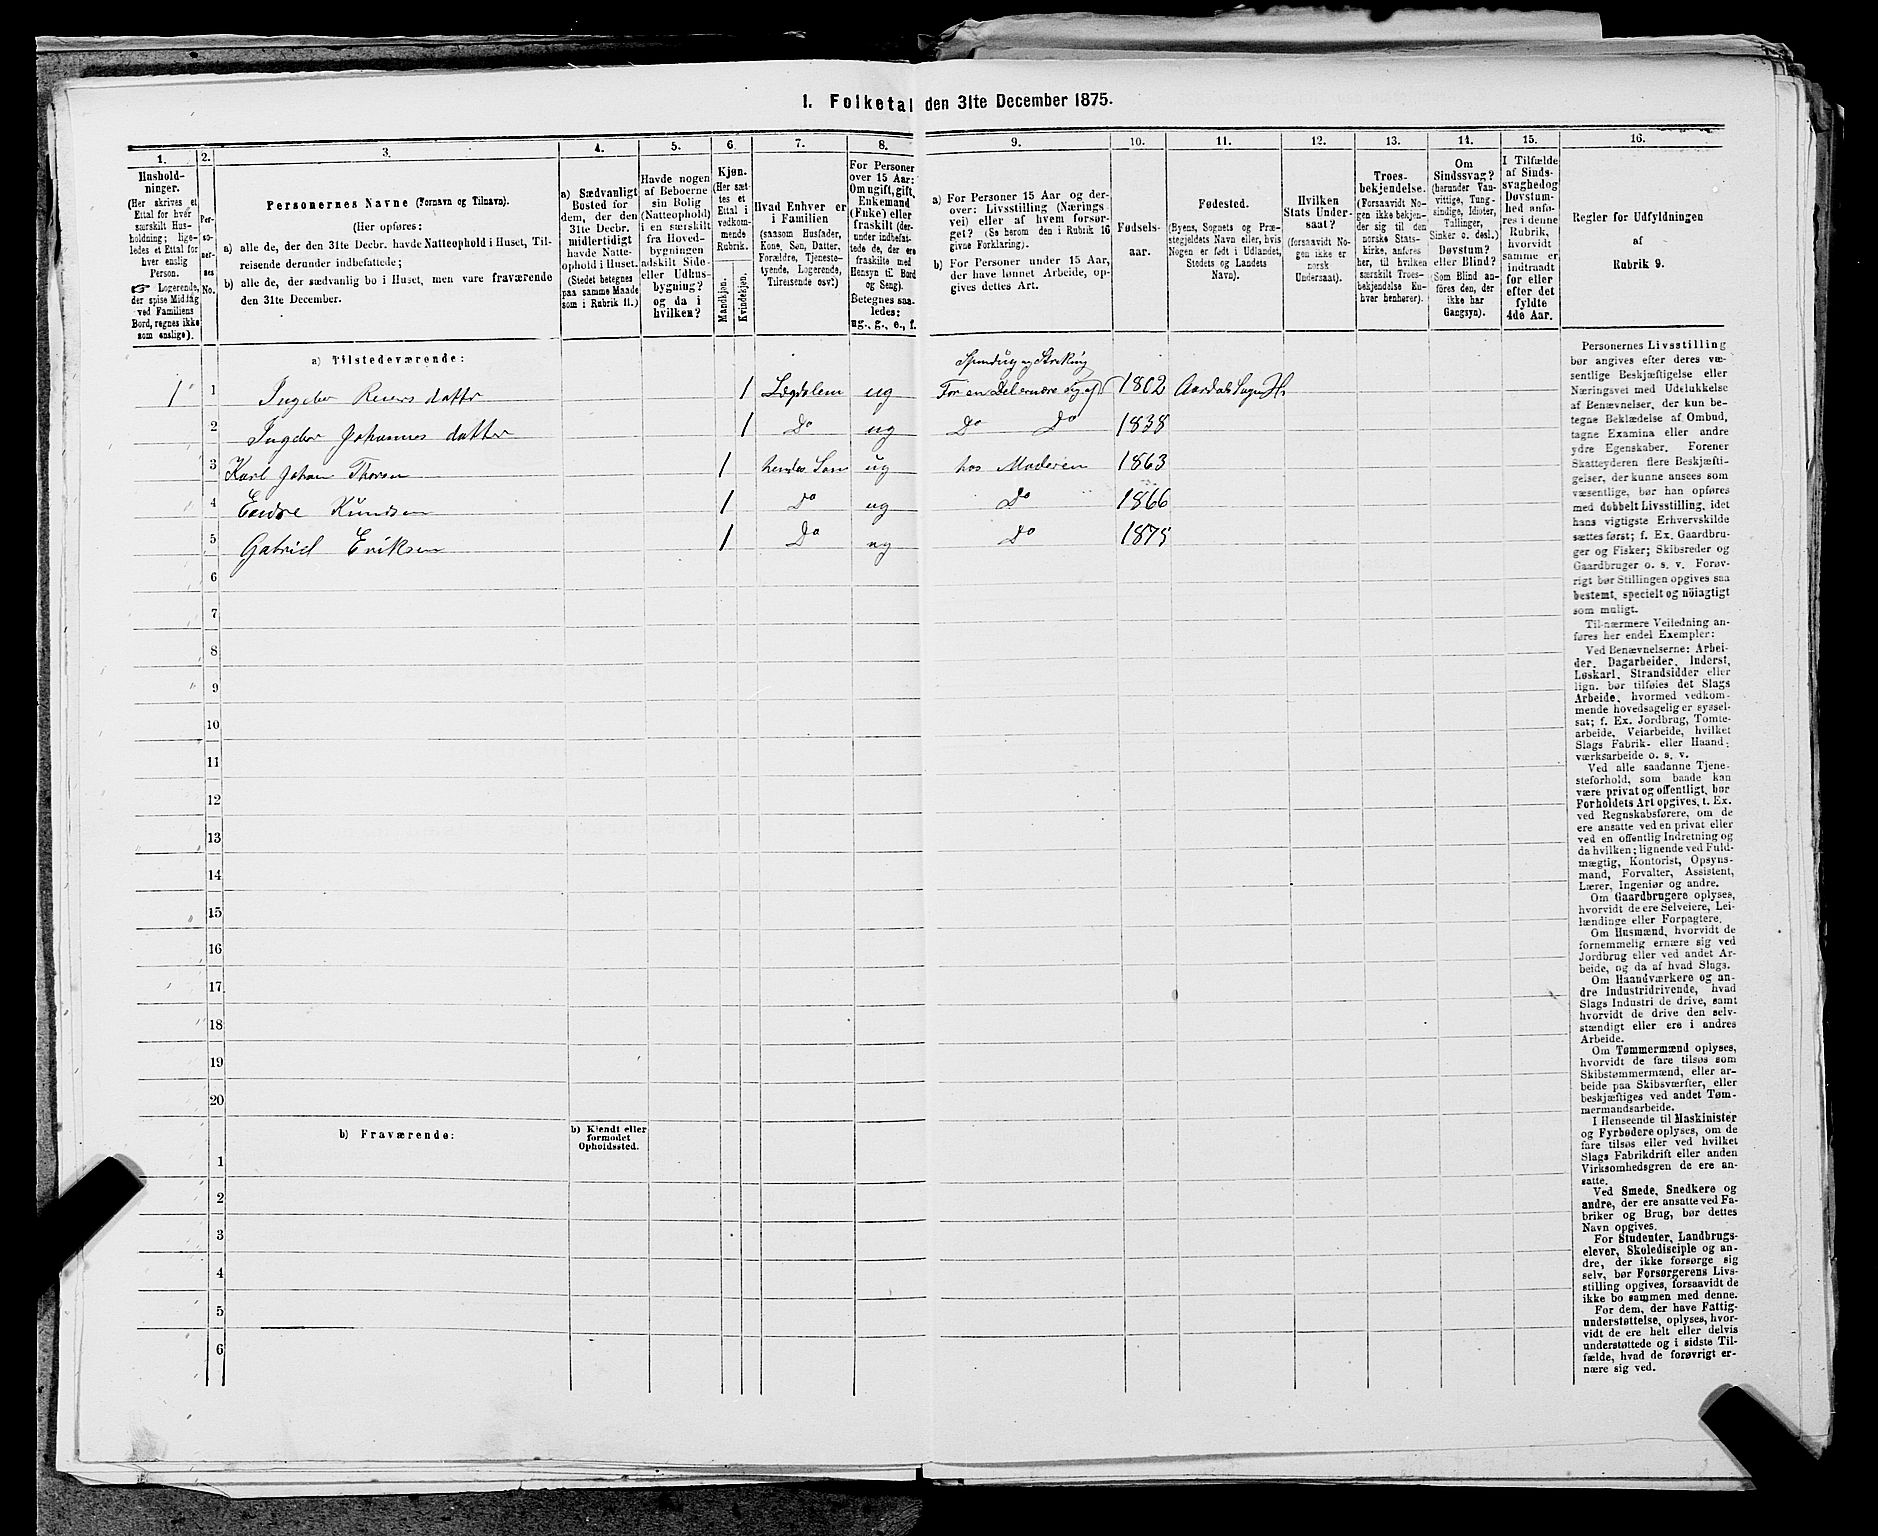 I. Folketal den 31te December 1875.
1. 2. 3. 4. 5. 6. 7. 8. 9. 10. 11. 12. 13. 14. 15. 16.
Hushold-
ninger.
(Her skrives et
Ettal for hvér
særskilt Hus-
holdning; lige-
ledes et Ettal for
hver enslig
Person.
☞ Logerende,
der spise Middag
ved Familiens
Bord, regnes ikke
som enslige).
Per-
so-
ner-
nes
No.
Personernes Navne (Fornavn og Tilnavn).
(Her opføres:
a) alle de, der den 31te Decbr. havde Natteophold i Huset, Til-
reisende derunder indbefattede;
b) alle de, der sædvanlig bo i Huset, men vare fraværende
den 31te December.
a) Sædvanligt
Bosted for
dem, der den
31te Decbr.
midlertidigt
havde Natte-
ophold i Huset.
(Stedet betegnes
paa samme Maade
som i Rubrik 11.)
Havde nogen
af Beboerne
sin Bolig
(Natteophold)
i en særskilt
fra Hoved-
bygningen
adskilt Side-
eller Udhus-
bygning?
og da i
hvilken?
Kjøn.
(Her sæt-
tes et
Ettal i
vedkom-
mende
Rubrik.
Mandkjøn.
Kvindekjøn.
Hvad Enhver er
i Familien
(saasom Husfader,
Kone, Søn, Datter,
Forældre, Tjeneste-
tyende, Logerende,
Tilreisende osv.)
For Personer
over 15 Aar:
Om ugift, gift,
Enkemand
(Enke) eller
fraskilt (der-
under indbefat-
tede de, der ere
fraskilte med
Hensyn til Bord
og Seng).
Betegnes saa-
ledes:
ug., g., e., f.
a) For Personer 15 Aar og der-
over: Livsstilling (Nærings
vei) eller af hvem forsør-
get? (Se herom den i Rubrik 16
givne Forklaring).
b) For Personer under 15 Aar,
der have lønnet Arbeide, op-
gives dettes Art.
Fødsels-
aar.
Fødested.
(Byens, Sognets og Præ-
stegjeldets Navn eller, hvis
Nogen er født i Udlandet,
Stedets og Landets
Navn).
Hvilken
Stats Under-
saat?
(forsaavidt No-
gen ikke er
norsk
Undersaat).
Troes-
bekjendelse.
(Forsaavidt No-
gen ikke bekjen-
der sig til den
norske Stats-
kirke, anføres
her, til hvilken
særskilt Troes-
bekjendelse En-
hver henhører).
Om
Sindssvag?
(herunder Van-
vittige, Tung-
sindige, Idioter,
Tullinger,
Sinker o. desl.)
Døvstum?
eller Blind?
(Som Blind an-
føres den, der
ikke har
Gangsyn).
I Tilfælde
af Sinds-
svaghed og
Døvstum-
hed anfø-
res i denne
Rubrik,
hvorvidt
samme er
indtraadt
før eller
efter det
fyldte
4de Aar.
Regler for Udfyldningen
af
Rubrik 9.
a) Tilstedeværende:
Spinding og Strikking
1 1 Ingebor Reiersdatter 1 Lægdslem ug For en Del ernære sig af 1802 Aardals Sogn H.
2 Ingebor Johannesdatter 1 Do ug Do Do 1838
3 Karl Johan Thorsen 1 hendes Søn ug hos Moderen 1863
4 Endre Knudsen 1 Do ug Do 1866
5 Gabriel Eriksen 1 Do ug Do 1875
6
7
8
9
10
11
12
13
14
15
16
17
18
19
20
b) Fraværende:
b) Kjendt eller
formodet
Opholdssted.
1
2
3
4
5
6
Personernes Livsstilling
bør angives efter deres væ-
sentlige Beskjæftigelse eller
Næringsvei med Udelukkelse
af Benævnelser, der kun be-
tegne Beklædelse af Ombud,
tagne Examina eller andre
ydre Egenskaber. Forener
Skatteyderen flere Beskjæfti-
gelser, der kunne ansees som
væsentlige, bør han opføres
med dobbelt Livsstilling, idet
hans vigtigste Erhvervskilde
sættes først; f. Ex. Gaardbru-
ger og Fisker; Skibsreder og
Gaardbruger o. s. v. Forøv-
rigt bør Stillingen opgives saa
bestemt, specielt og nöiagtigt
som muligt.
Til nærmere Veiledning an-
føres her endel Exempler:
Ved Benævnelserne: Arbei-
der, Dagarbeider, Inderst,
Løskarl, Strandsidder eller
lign. bør tilføies det Slags
Arbeide, hvormed vedkom-
mende hovedsagelig er syssel-
sat; f. Ex. Jordbrug, Tomte-
arbeide, Veiarbeide, hvilket
Slags Fabrik- eller Haand-
værksarbeide o. s. v.
Ved alle saadanne Tjene-
steforhold, som baade kan
være privat og offentligt, bør
Forholdets Art opgives, t. Ex.
ved Regnskabsførere, om de
ere ansatte ved en privat eller
ved en offentlig Indretning og
da hvilken; lignende ved Fuld-
mægtig, Kontorist, Opsyns-
mand, Forvalter, Assistent,
Lærer, Ingeniør og andre.
Om Gaardbrugere oplyses,
hvorvidt de ere Selveiere, Lei-
lændinge eller Forpagtere.
Om Husmænd, hvorvidt de
fornemmelig ernære sig ved
Jordbrug eller ved andet Ar-
beide, og da af hvad Slags.
Om Haandværkere og an-
dre Industridrivende, hvad
Slags Industri de drive, samt
hvorvidt de drive den selv-
stændigt eller ere i andres
Arbeide.
Om Tømmermænd oplyses,
hvorvidt de fare tilsøs som
Skibstømmermænd, eller ar-
beide paa Skibsværfter, eller
beskjæftiges ved andet Tøm-
mermandsarbeide.
I Henseende til Maskinister
og Fyrbødere oplyses, om de
fare tilsøs eller ved hvilket
Slags Fabrikdrift eller anden
Virksomhedsgren de ere an-
satte.
Ved Smede, Snedkere og
andre, der ere ansatte ved Fa-
briker og Brug, bør dettes
Navn opgives.
For Studenter, Landbrugs-
elever, Skoledisciple og an-
dre, der ikke forsørge sig
selv, bør Forsørgerens Livs-
stilling opgives, forsaavidt de
ikke bo sammen med denne.
For dem, der have Fattig-
understøttelse, oplyses, hvor-
vidt de ere helt eller delvis
understøttede og i sidste Til-
fælde, hvad de forøvrigt er-
nære sig ved.